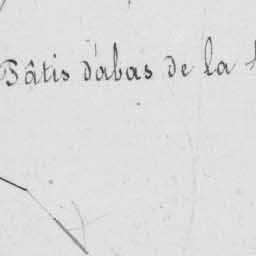 Pâtis d'abas de la